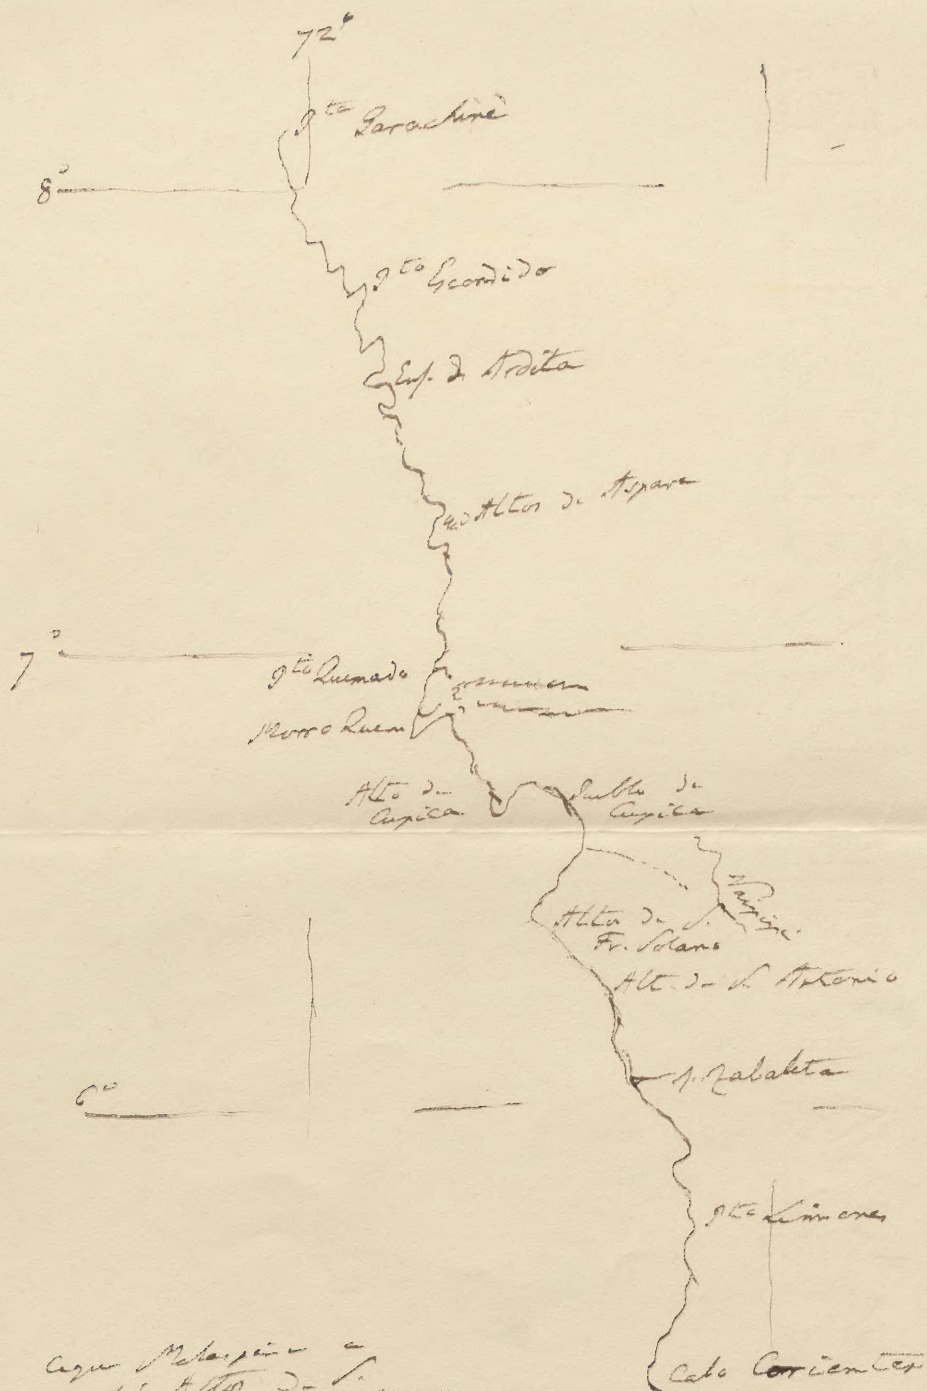 72°
Pta Garachiné
8°
Pto Escondido
Ens. de Ardita
Altos de Aspave
7°
Pto Quemado
Morro Quem
Alto de
Cupica
Pueblo de
Cupica
Naipipi
Altos de S.
Fr. Solano
Alt. de S. Antonio
6°
Pta Limones
Cabo Corrientes
Malaspina a
Altos de S.